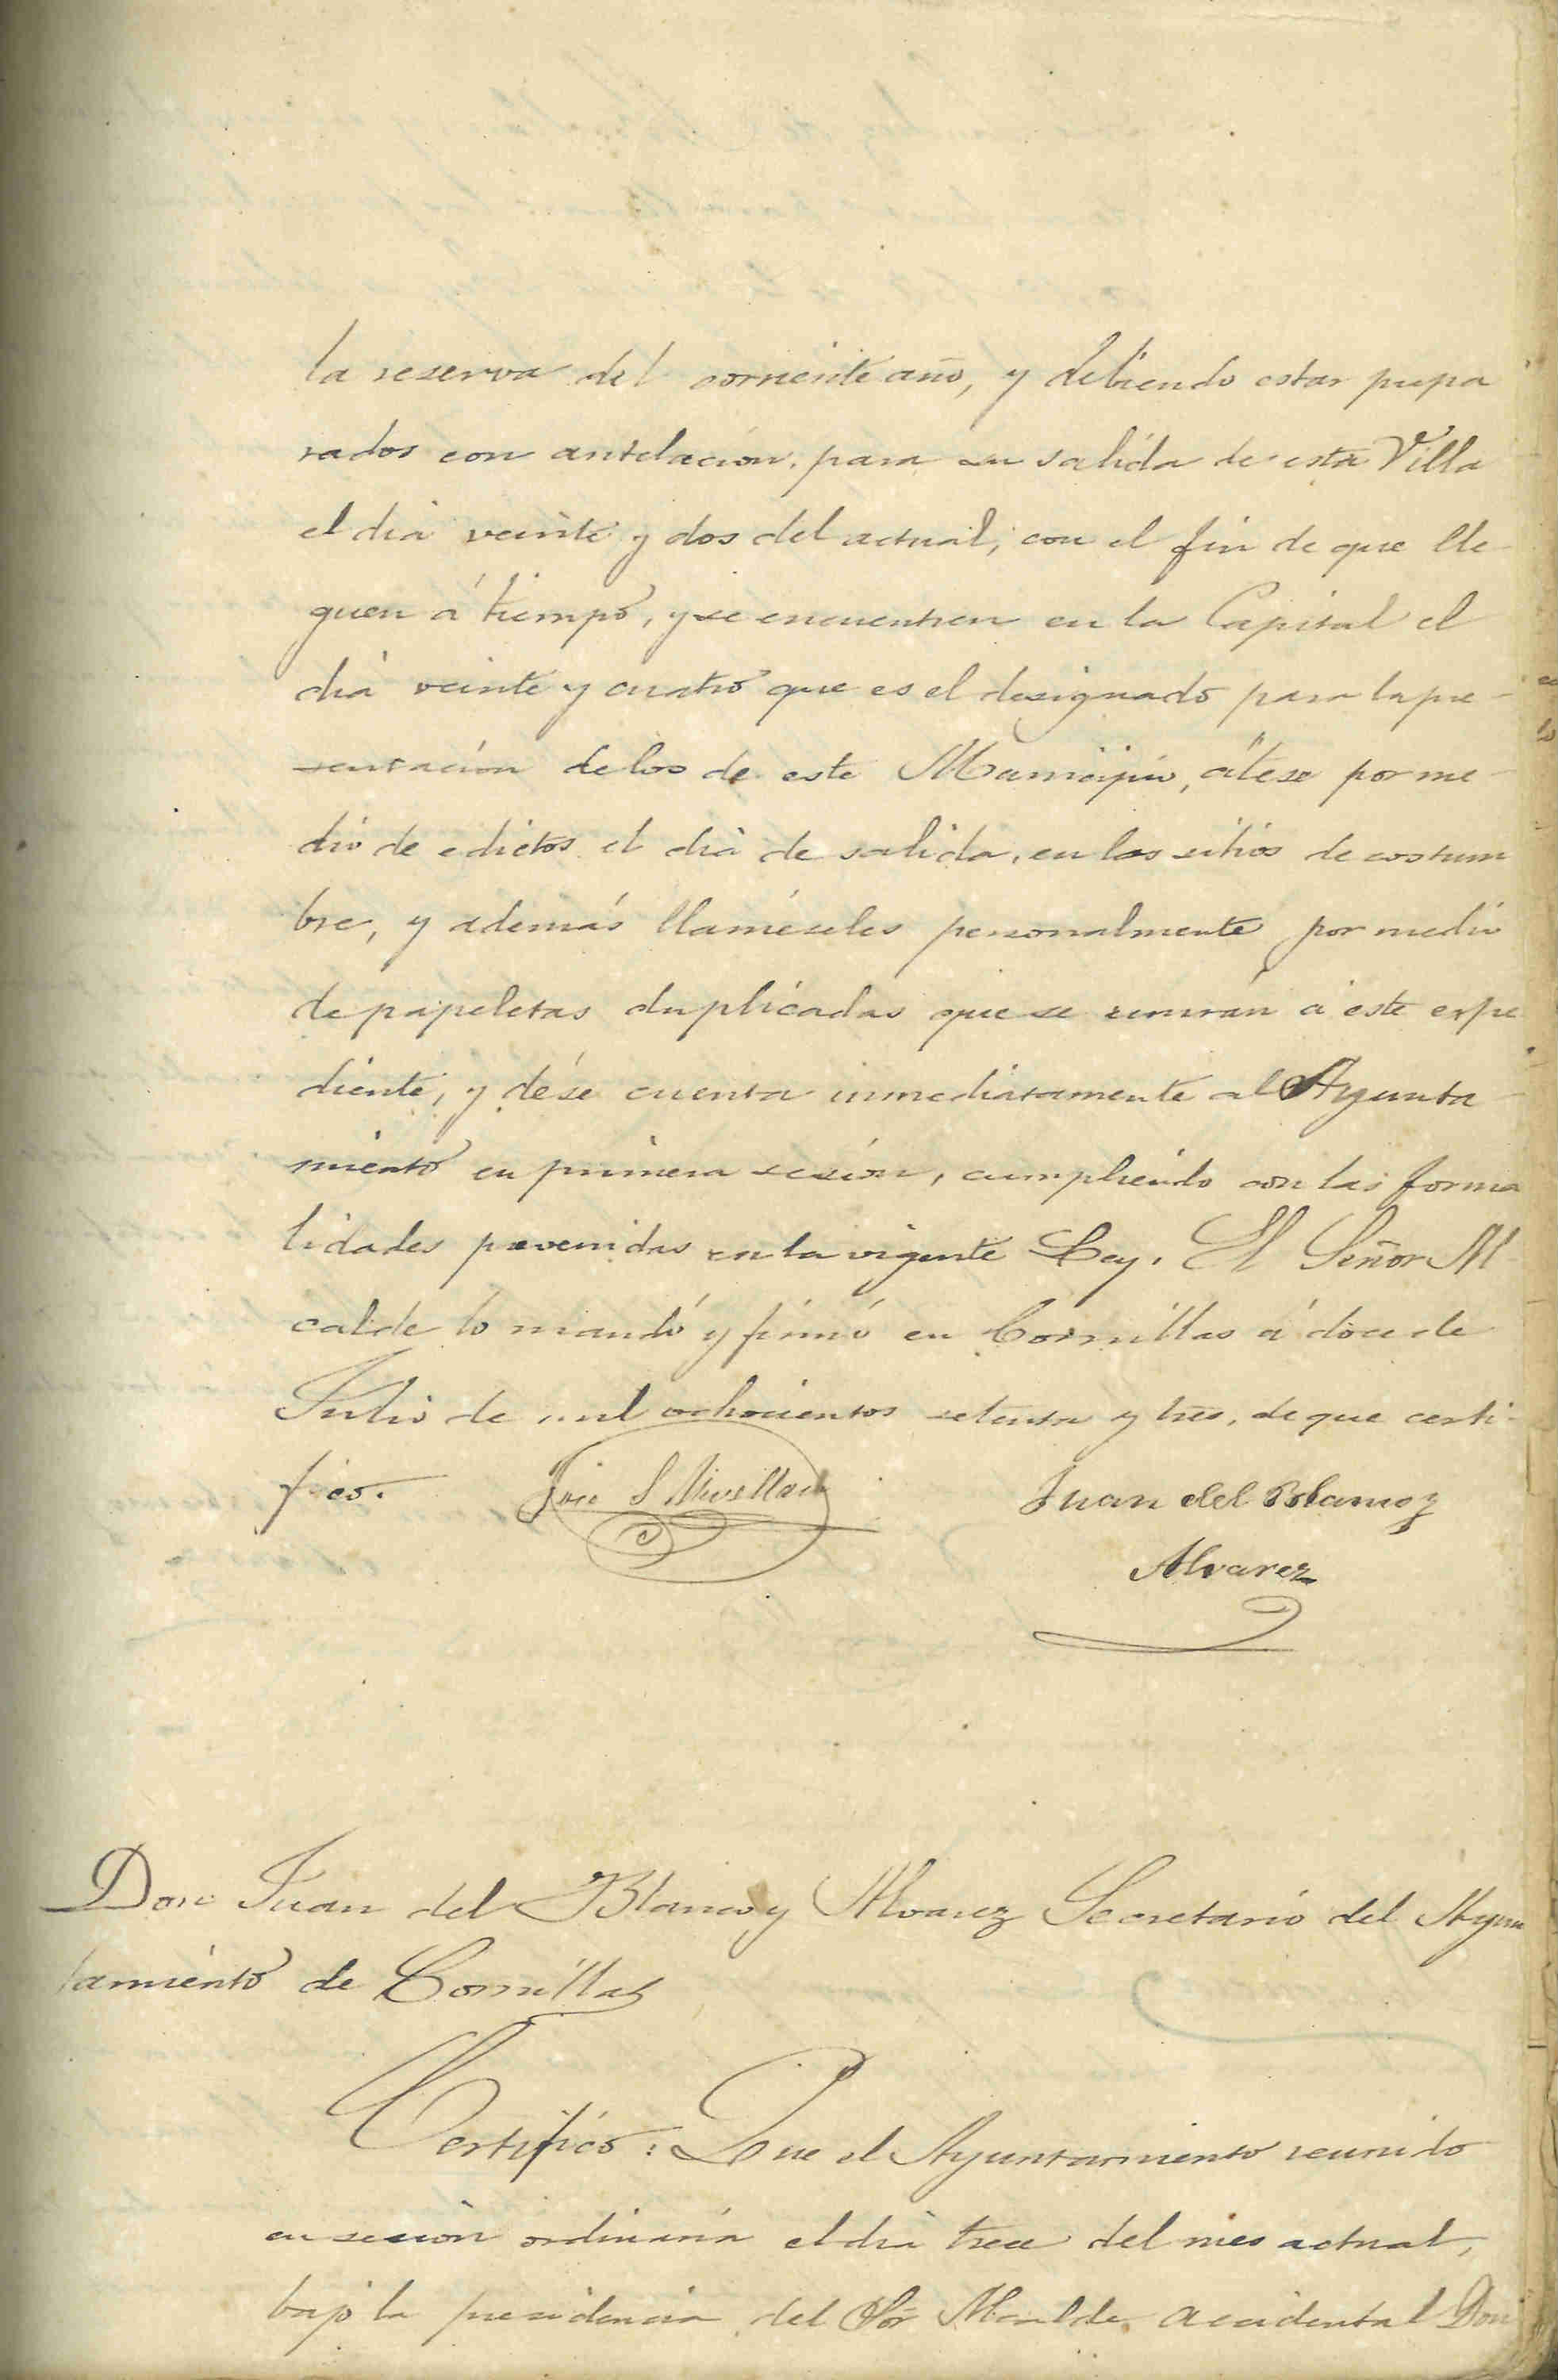 la reserva del corriente año, y debiendo estar prepa
rados con antelación, para su salida de esta Villa
el dia veinte y dos del actual, con el fin de que lle
guen á tiempo, y se encuentren en la Capital el
dia veinte y cuatro que es el designado para la pre-
sentación de los de este Municipio, cítese por me-
dio de edictos el dia de salida, en los sitios de costum
bre, y además llaméseles personalmente por medio
de papeletas duplicadas que se unirán á este expe
diente, y dése cuenta inmediatamente al Ayunta-
miento en primera sesión, cumpliendo con las forma
lidades prevenidas en la vigente Ley. El Señor Al-
calde lo mandó y firmó en Comillas á doce de
Julio de mil ochocientos setenta y tres, de que certi-
fico.
José S Juan del Blanco y
Alvarez
Don Juan del Blanco y Alvarez Secretario del Ayun
tamiento de Comillas
Certifico: Que el Ayuntamiento reunido
en sesión ordinaria el dia trece del mes actual,
bajo la presidencia del Sor Alcalde accidental Don